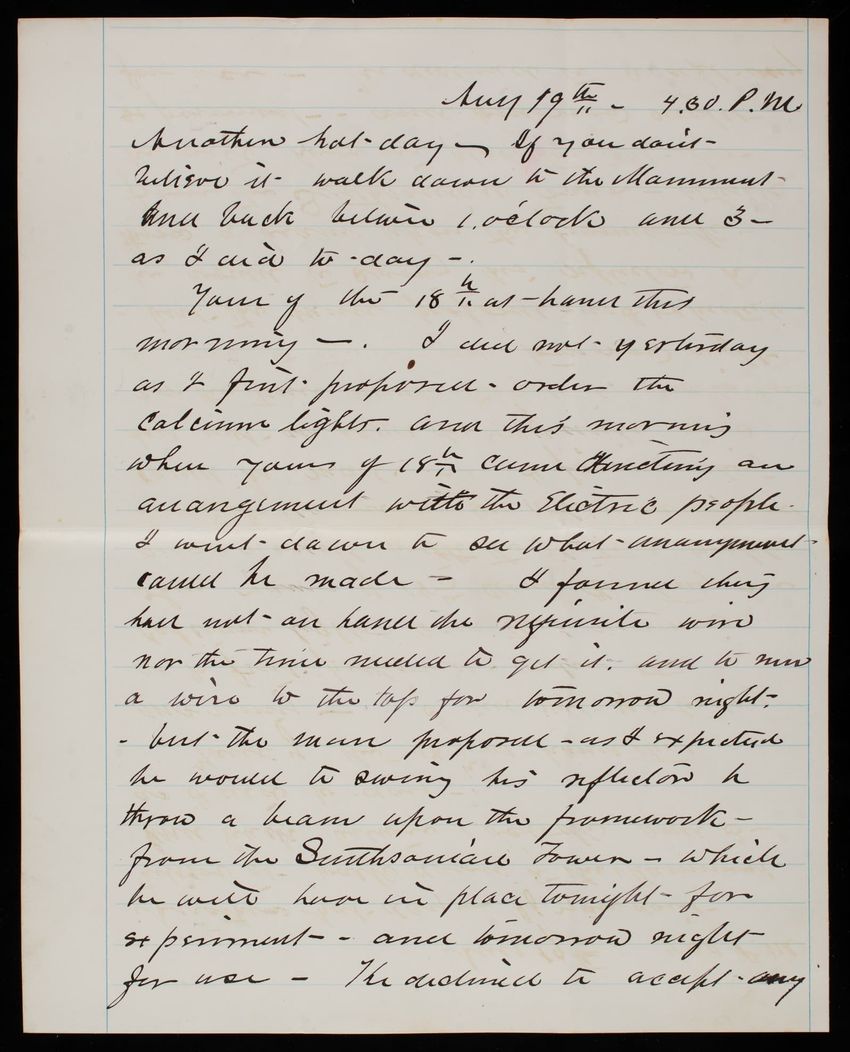 Aug 19th - 4.30. P.M
Another hot-day - If you don't
believe it walk down to the Monument
and back between 1. o'clock and 3 -
as I did to-day -.
Yours of the 18th at-hand this
morning -. I did not yesterday
as I first proposed - order the
Calcium lights. and this morning
when yours of 18th came directing an
arrangement with the Electric people.
I went down to see what arrangement
could be made - I found they
had not on hand the requisite wire
nor the time needed to get it. and to run
a wire to the top for tomorrow night.
- but the man proposed - as I expected
he would to swing his reflector &
throw a beam upon the framework -
from the Smithsonian Tower - which
he will have in place tonight for
experiment - and tomorrow night
for use - He declined to accept any